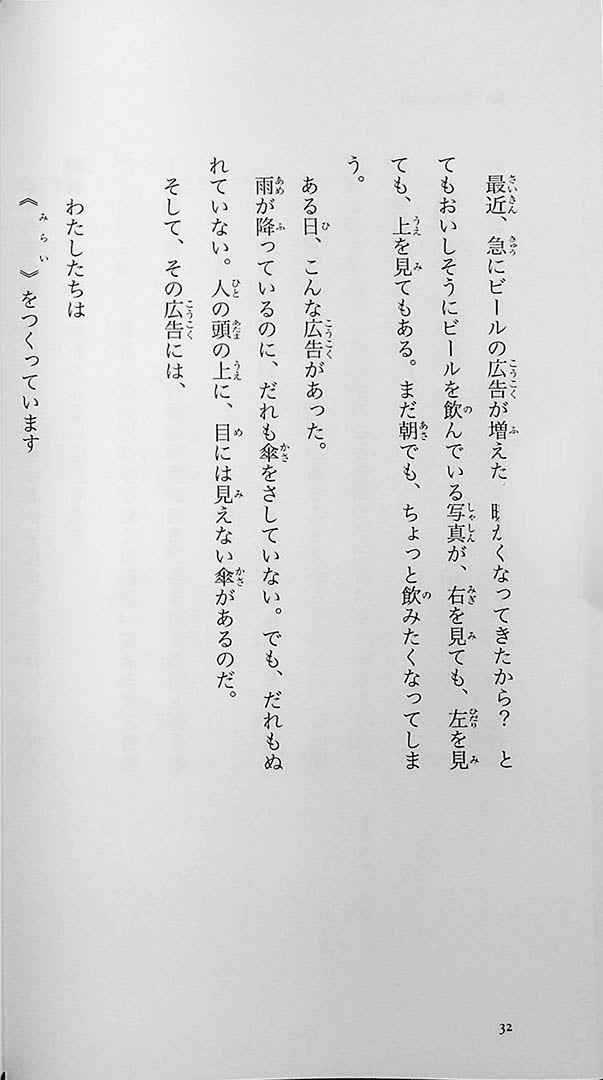 最近、急にビールの広告が増えた　暖たくなってきたから？　と
てもおいしそうにビールを飲んでいる写真が、右を見ても、左を見
ても、上を見てもある。まだ朝でも、ちょっと飲みたくなってしま
う。
ある日、こんな広告があった。
雨が降っているのに、だれも傘をさしていない。でも、だれもぬ
れていない。人の頭の上に、目には見えない傘があるのだ。
そして、その広告には、
わたしたちは
《みらい》をつくっています
32